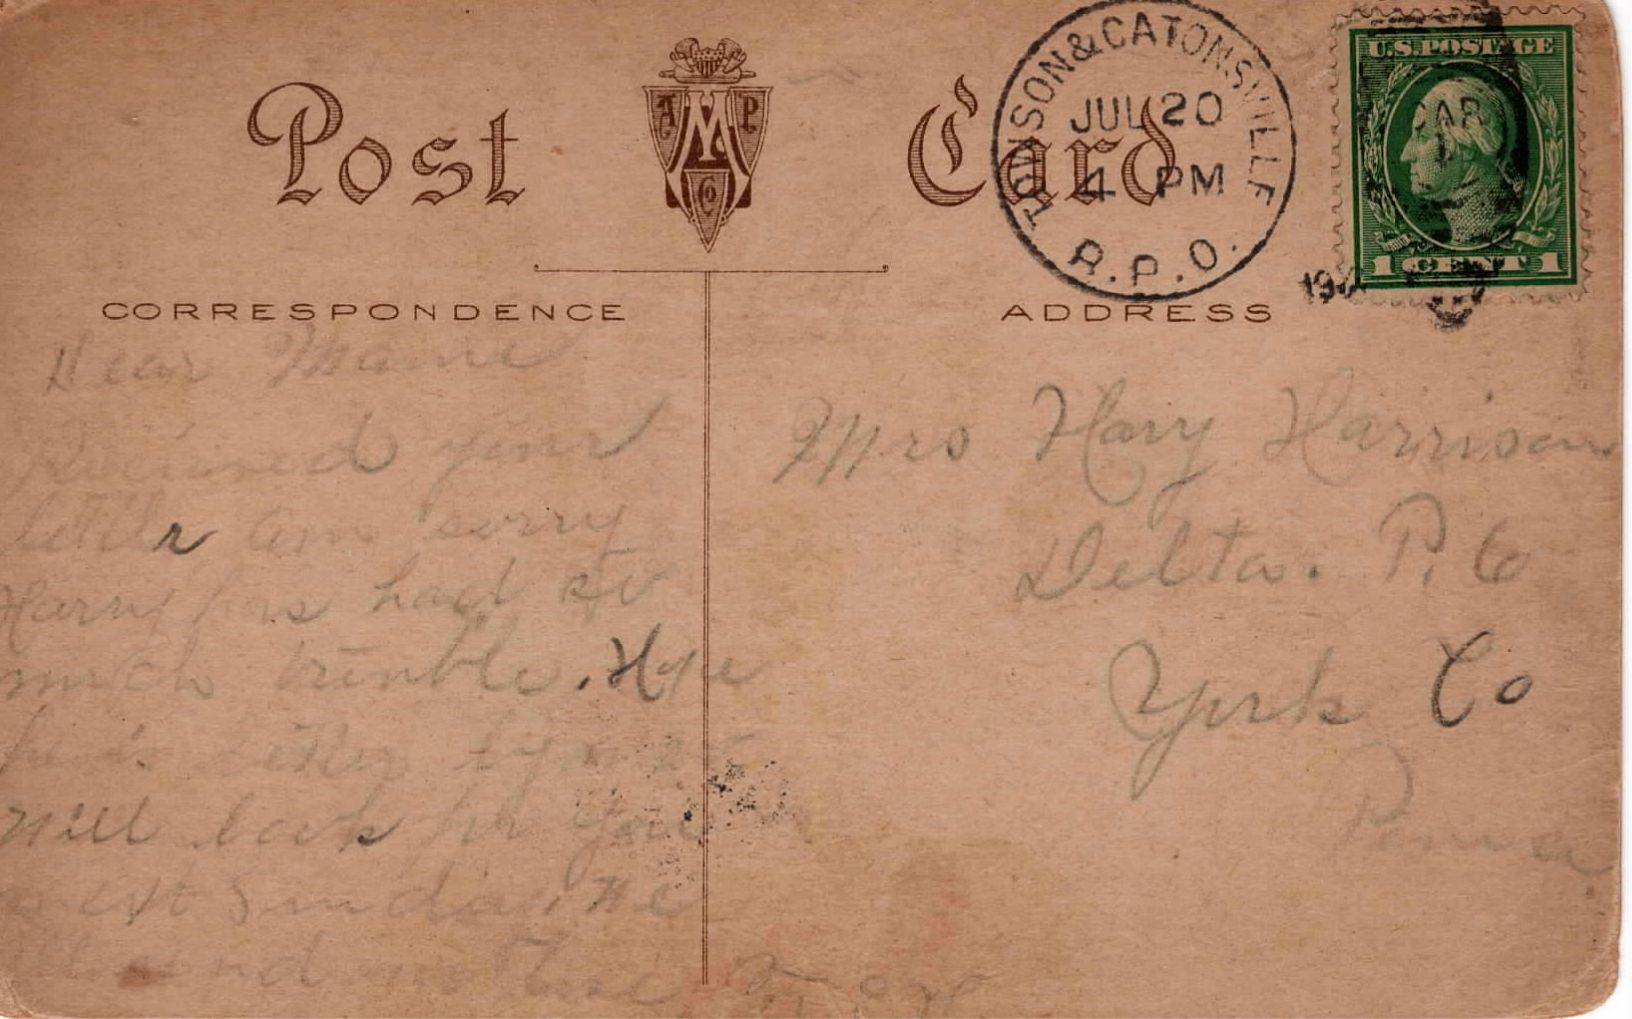 Post Card
A M P Co
TOWSON & CATONSVILLE
JUL 20
4 PM
R.P.O.
U.S. POSTAGE
CAR
1 CENT 1
19
CORRESPONDENCE
ADDRESS
Dear Mame
Recieved your
letter am sorry
Harry has had so
much trouble. Hope
he is better by now
Will look for you
next Sunday. We
all send
Mrs Harry Harrison
Delta. P. 6
York Co
Penna.